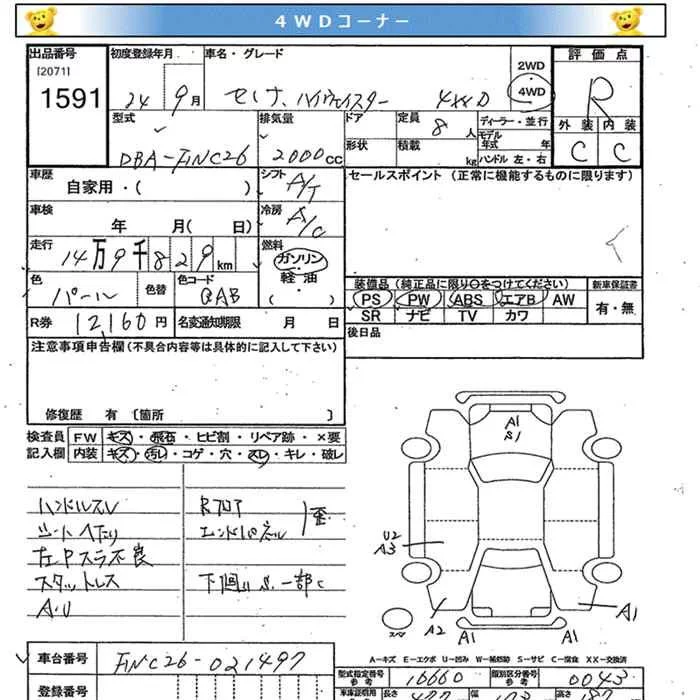 4WDコーナー
出品番号 初度登録年月 車名・グレード 2WD 評価点
[2071]
1591 24 9月 セレナ ハイウェイスター 4WD 4WD R
型式 排気量 ドア 定員 8人 ディーラー・並行 外装 内装
DBA-FNC26 2000cc 形状 積載 kg モデル年式 年 C C
ハンドル 左・右
車歴 シフト A/T セールスポイント (正常に機能するものに限ります)
自家用・( )
車検 冷房 A/C
年 月( 日)
走行 14万9千829km 燃料 ガソリン
軽油
( )
色 パール 色替 色コード QAB
装備品 (純正品に限り○をつけてください) 新車保証書
PS PW ABS エアB AW 有・無
SR ナビ TV カワ
R券 12,160円 名変通知期限 月 日 後日品
注意事項申告欄(不具合内容等は具体的に記入して下さい)
修復歴 有 〔箇所 〕
検査員 FW キズ・飛石・ヒビ割・リペア跡・×要
記入欄 内装 キズ・汚レ・コゲ・穴・スレ・キレ・破レ
ハンドルスレ Rフロア
シートヘたり エンドパネル 歪
左Pスラ不良
スタットレス 下廻りS.一部C
A.U
A1
S1
U2
A3
スペア A2 A1 A1 A1
A-キズ E-エクボ U-凹み W-補修跡 S-サビ C-腐食 XX-交換済
車台番号 FNC26-021497
型式指定番号 参考 16660 類別区分番号 参考 0043
登録番号 車庫証明用 長さ 幅 高さ